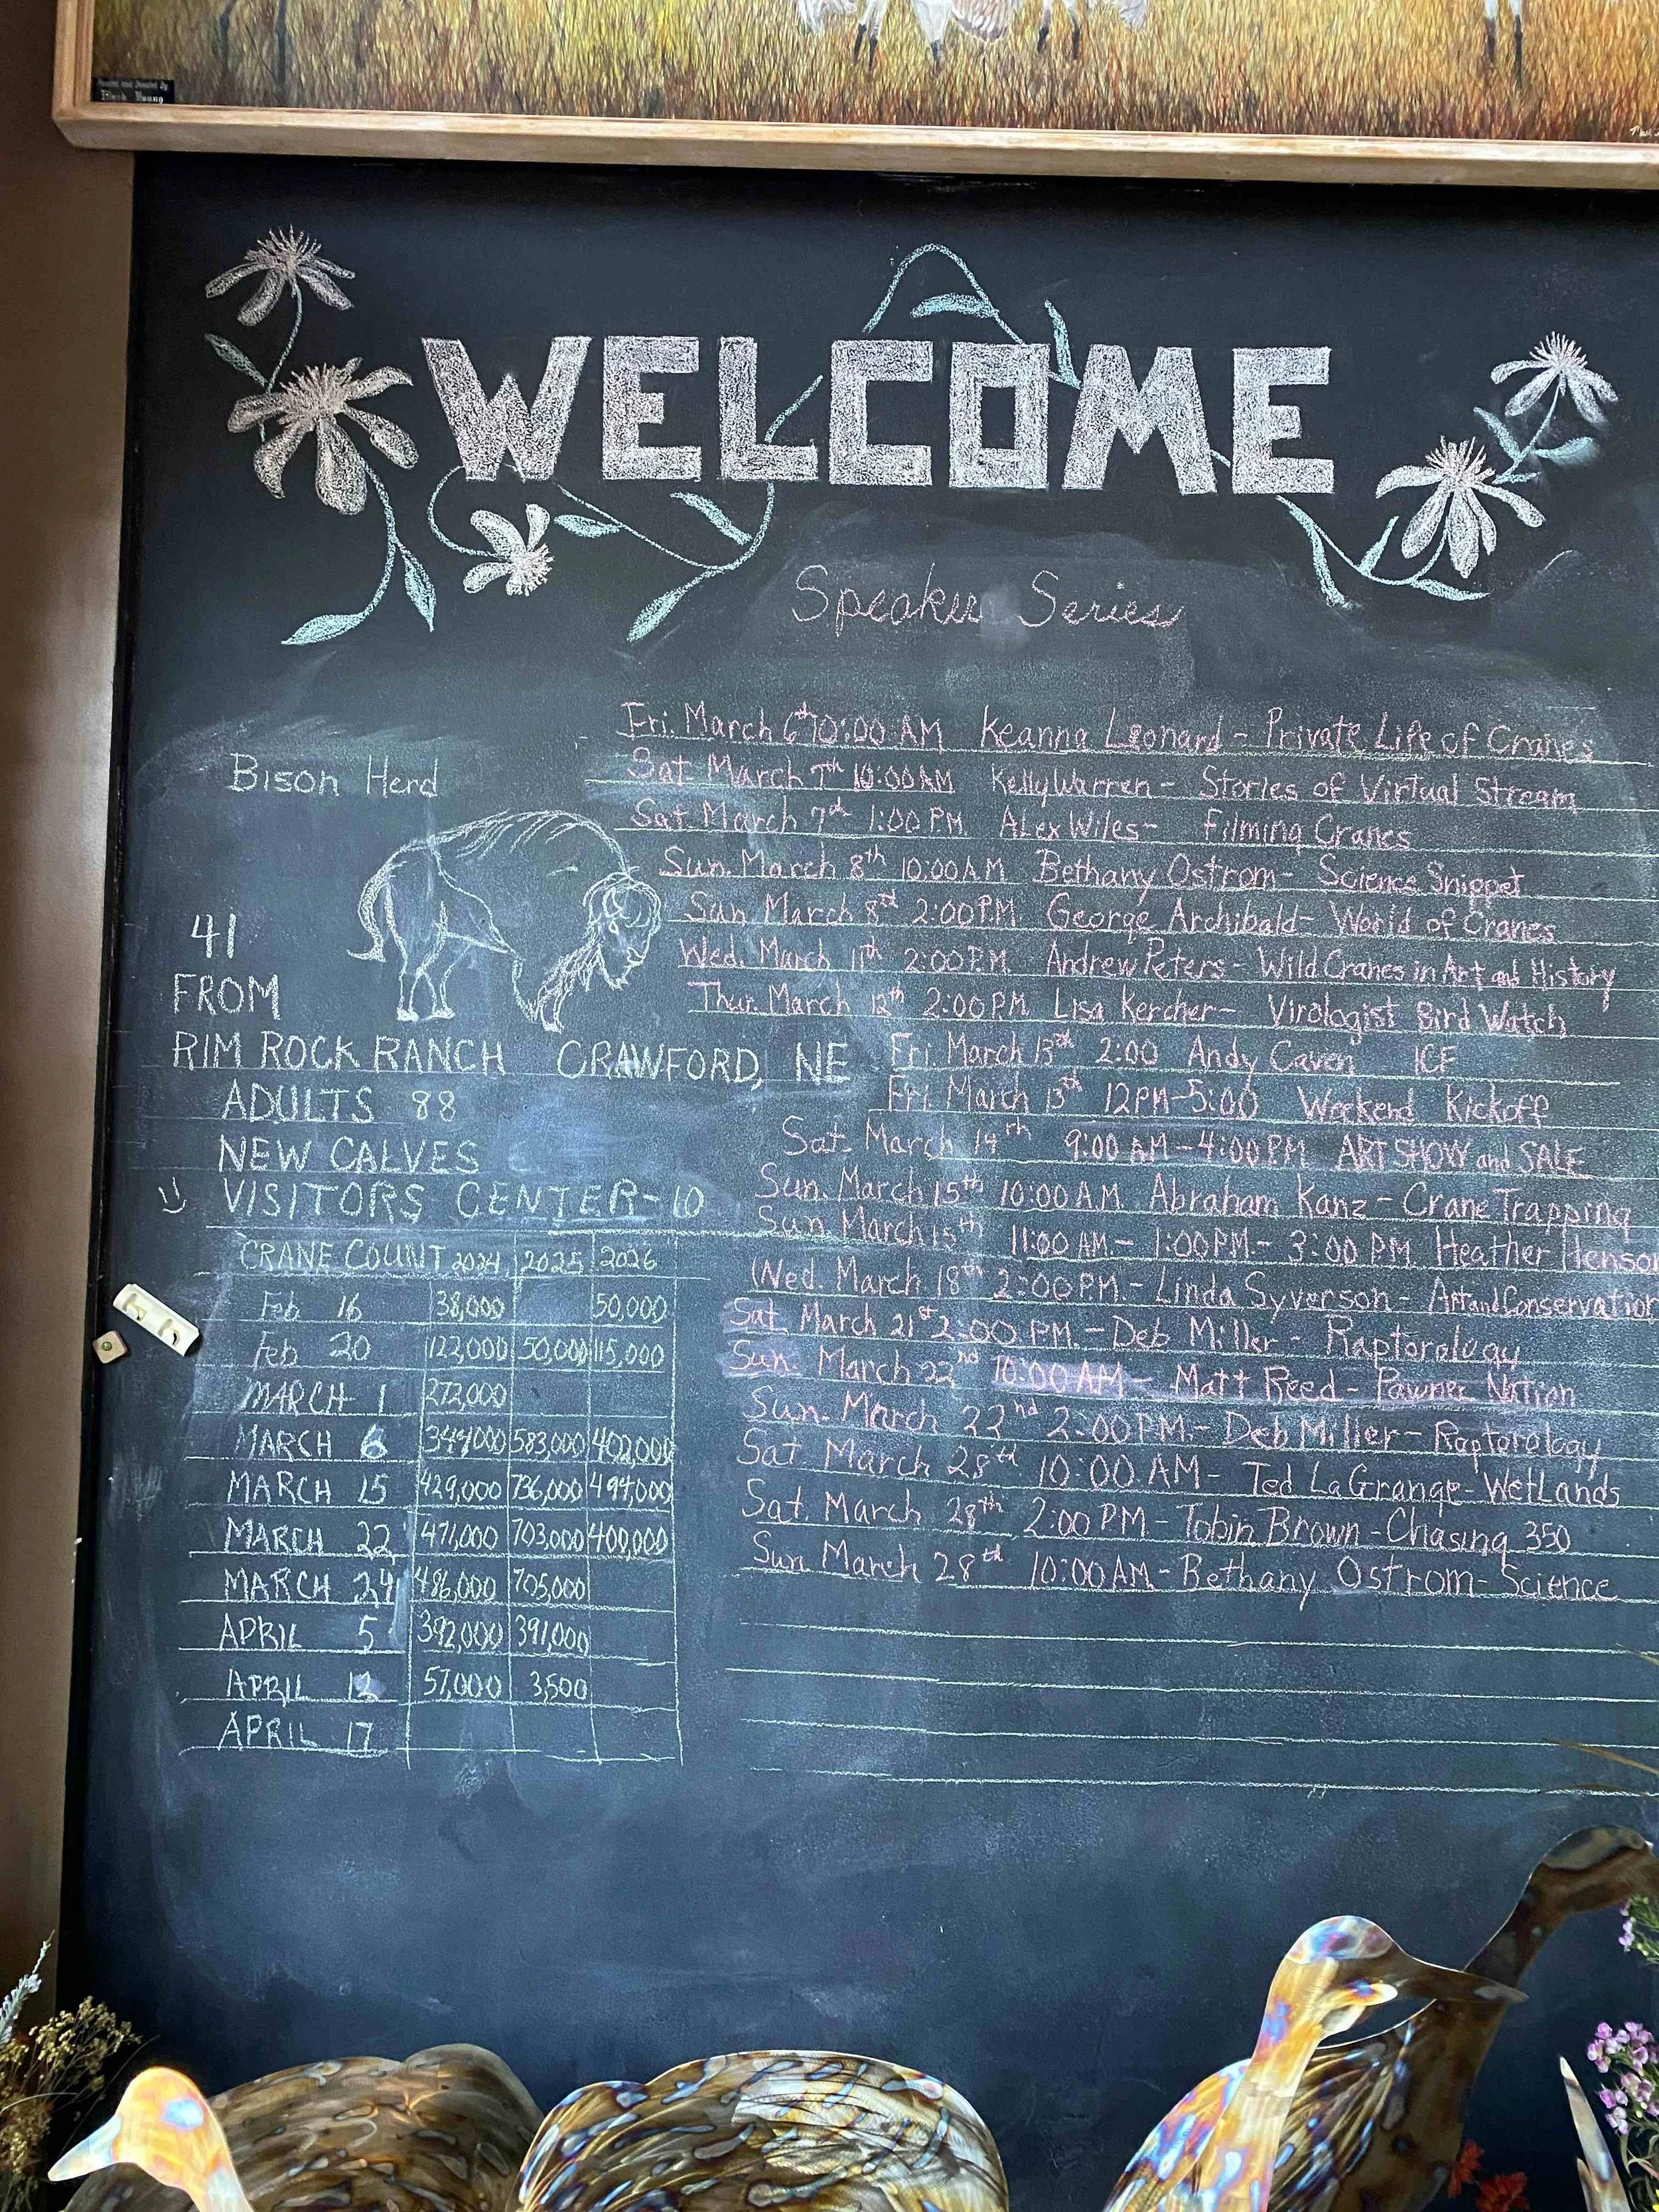 WELCOME
Speaker Series
Fri. March 6th 10:00 AM Keanna Leonard - Private Life of Cranes
Sat. March 7th 10:00 AM Kelly Warren - Stories of Virtual Stream
Sat. March 7th 1:00 P.M. Alex Wiles - Filming Cranes
Sun. March 8th 10:00 A.M. Bethany Ostrom - Science Snippet
Sun. March 8st 2:00 P.M. George Archibald - World of Cranes
Wed. March 11th 2:00 P.M. Andrew Peters - Wild Cranes in Art and History
Thur. March 12th 2:00 P.M. Lisa Kercher - Virologist Bird Watch
Fri. March 13th 2:00 Andy Caven ICF
Fri. March 13th 12PM-5:00 Weekend Kickoff
Sat. March 14th 9:00 AM-4:00 P.M. ART SHOW and SALE
Sun. March 15th 10:00 A.M. Abraham Kanz - Crane Trapping
Sun. March 15th 11:00 A.M. - 1:00 P.M. - 3:00 P.M. Heather Henson
Wed. March 18th 2:00 P.M. - Linda Syverson - Art and Conservation
Sat. March 21st 2:00 P.M. - Deb Miller - Raptorology
Sun. March 22nd 10:00 AM - Matt Reed - Pawnee Nation
Sun. March 22nd 2:00 P.M. - Deb Miller - Raptorology
Sat. March 28th 10:00 AM - Ted LaGrange - Wetlands
Sat. March 28th 2:00 PM - Tobin Brown - Chasing 350
Sun. March 28th 10:00 AM - Bethany Ostrom - Science
Bison Herd
41
FROM
RIM ROCK RANCH CRAWFORD, NE
ADULTS 88
NEW CALVES
VISITORS CENTER-10
CRANE COUNT 2024 2025 2026
Feb 16 38,000 50,000
Feb 20 122,000 50,000 115,000
MARCH 1 272,000
MARCH 6 344,000 583,000 402,000
MARCH 15 429,000 736,000 494,000
MARCH 22 471,000 703,000 400,000
MARCH 29 486,000 705,000
APRIL 5 392,000 391,000
APRIL 12 57,000 3,500
APRIL 17